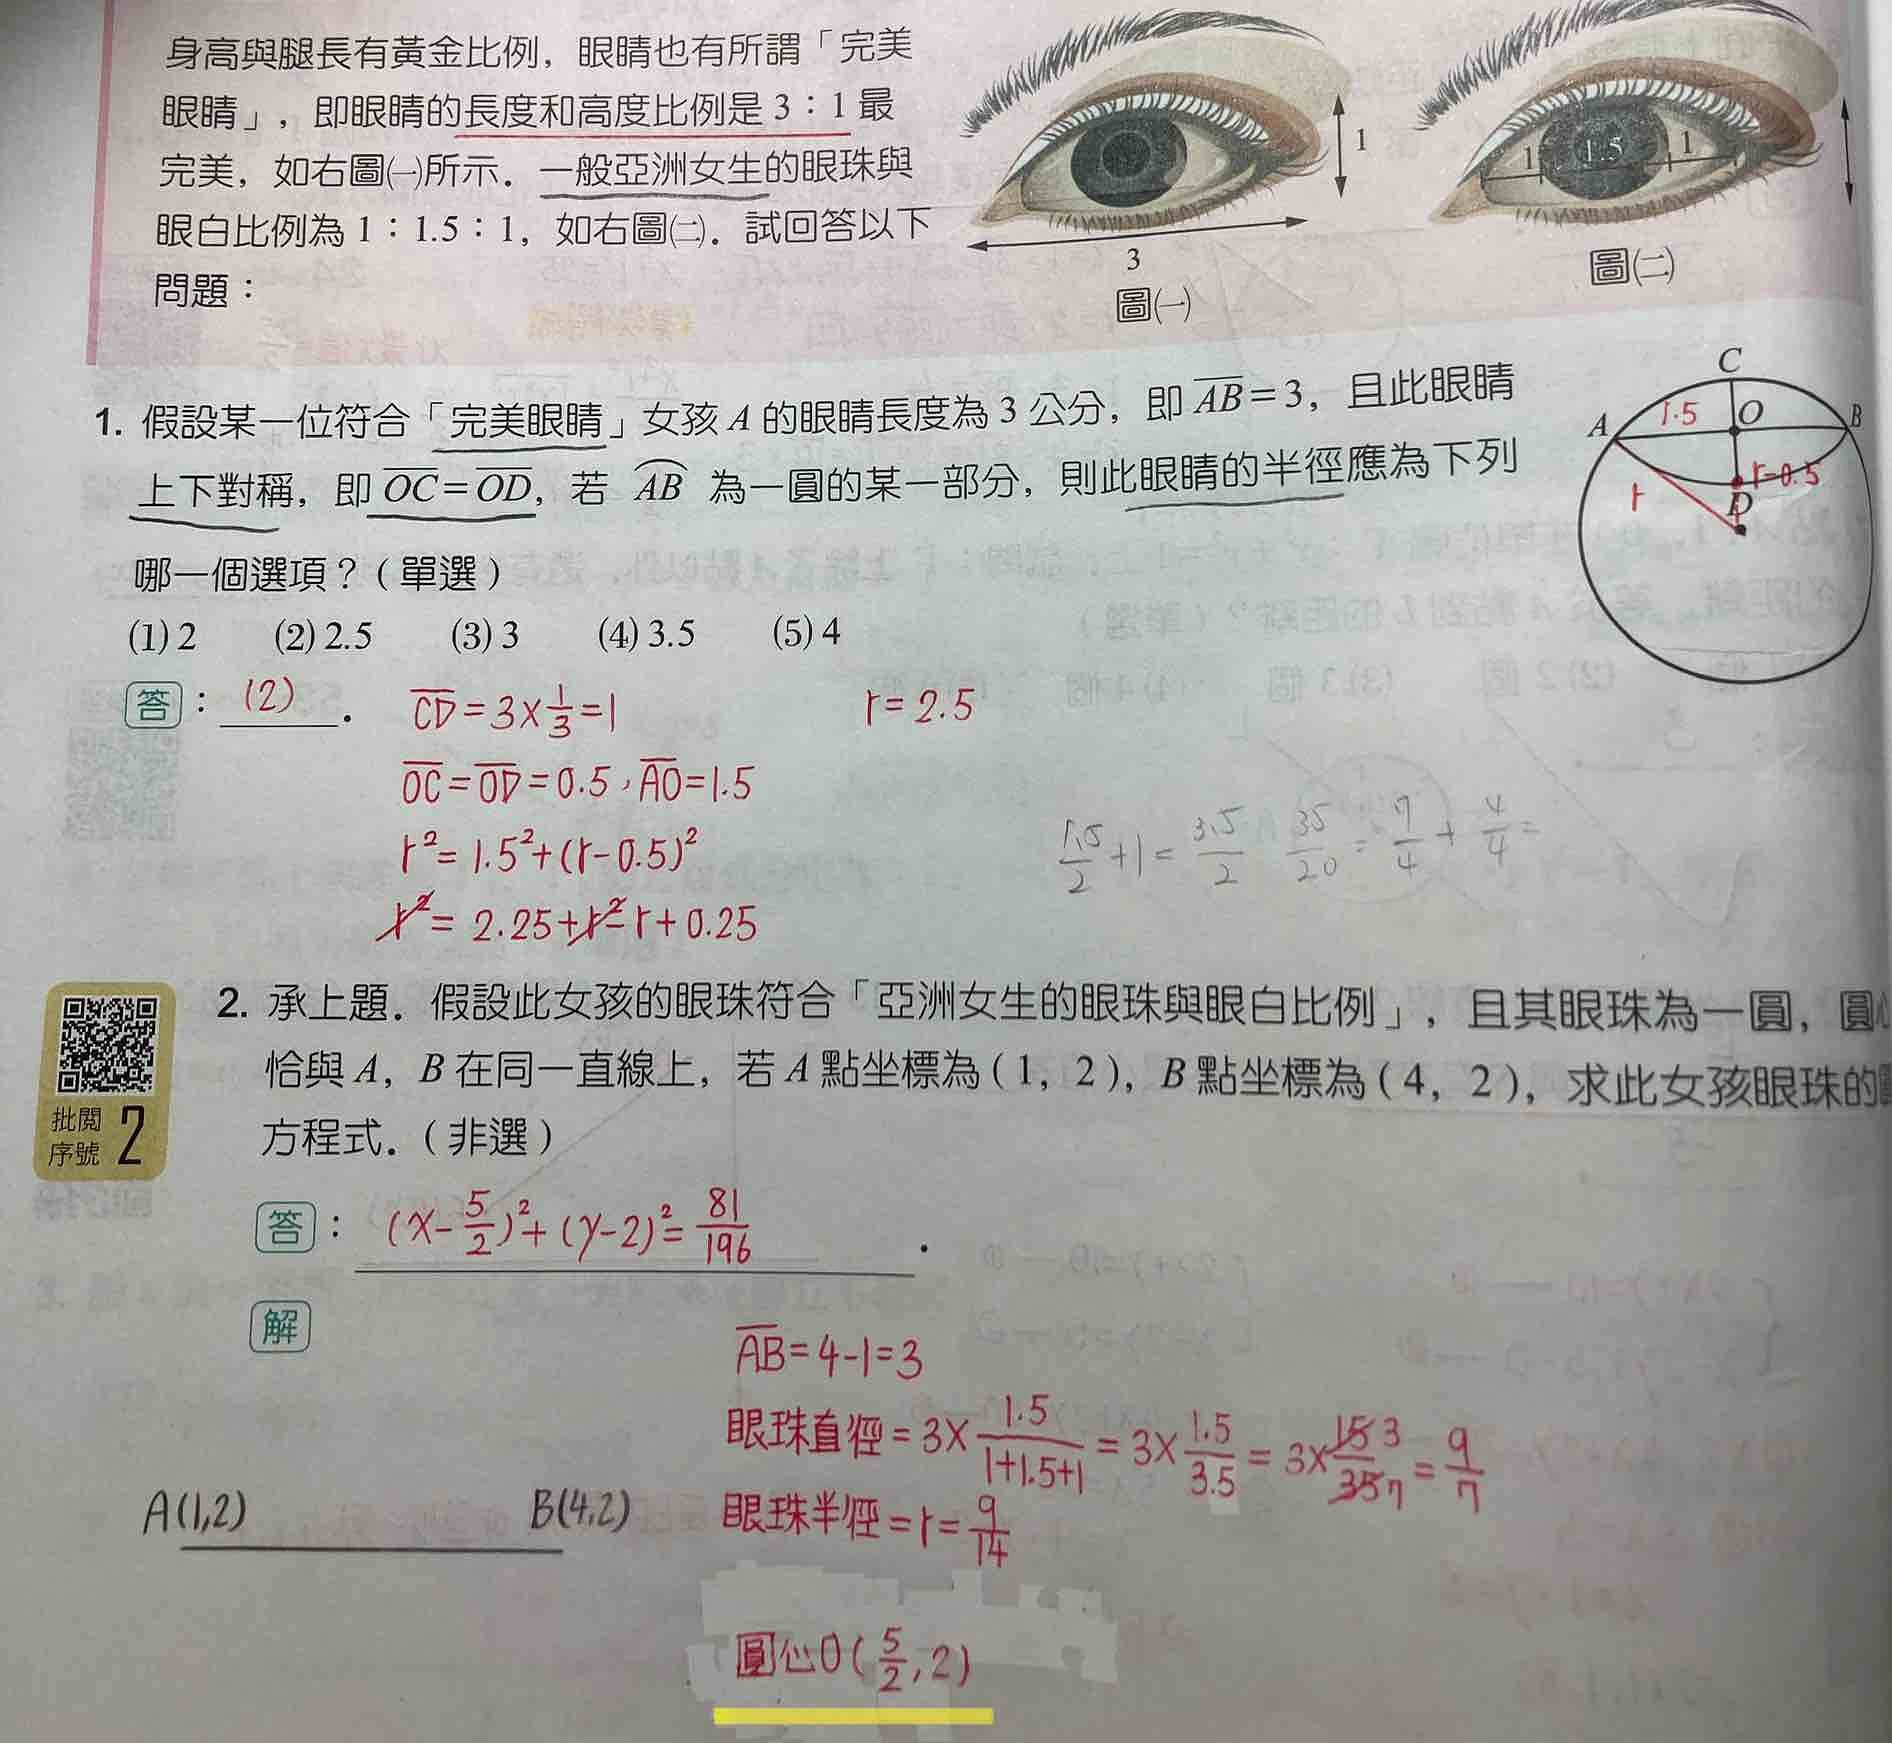 身高與腿長有黃金比例，眼睛也有所謂「完美
眼睛」，即眼睛的長度和高度比例是 3：1 最
完美，如右圖㈠所示．一般亞洲女生的眼珠與
眼白比例為 1：1.5：1，如右圖㈡．試回答以下
問題：
1
3
圖㈠
1 1.5 1
圖㈡
1. 假設某一位符合「完美眼睛」女孩 A 的眼睛長度為 3 公分，即 \overline{AB}=3，且此眼睛
上下對稱，即 \overline{OC}=\overline{OD}，若 \overset{\frown}{AB} 為一圓的某一部分，則此眼睛的半徑應為下列
哪一個選項？（單選）
(1) 2 (2) 2.5 (3) 3 (4) 3.5 (5) 4
C
A 1.5 O B
r D r-0.5
答：(2)．
\overline{CD}=3×\frac{1}{3}=1
\overline{OC}=\overline{OD}=0.5，\overline{AO}=1.5
r²=1.5²+(r-0.5)²
r²=2.25+r²-r+0.25
r=2.5
\frac{1.5}{2}+1=\frac{3.5}{2} \frac{35}{20}=\frac{7}{4}+\frac{4}{4}=
批閱
序號 2
2. 承上題．假設此女孩的眼珠符合「亞洲女生的眼珠與眼白比例」，且其眼珠為一圓，圓心
恰與 A，B 在同一直線上，若 A 點坐標為（1，2），B 點坐標為（4，2），求此女孩眼珠的
方程式．（非選）
答：(x-\frac{5}{2})²+(y-2)²=\frac{81}{196}．
解
\overline{AB}=4-1=3
眼珠直徑=3×\frac{1.5}{1+1.5+1}=3×\frac{1.5}{3.5}=3×\frac{15 3}{35 7}=\frac{9}{7}
眼珠半徑=r=\frac{9}{14}
A(1,2) B(4,2)
圓心O(\frac{5}{2},2)